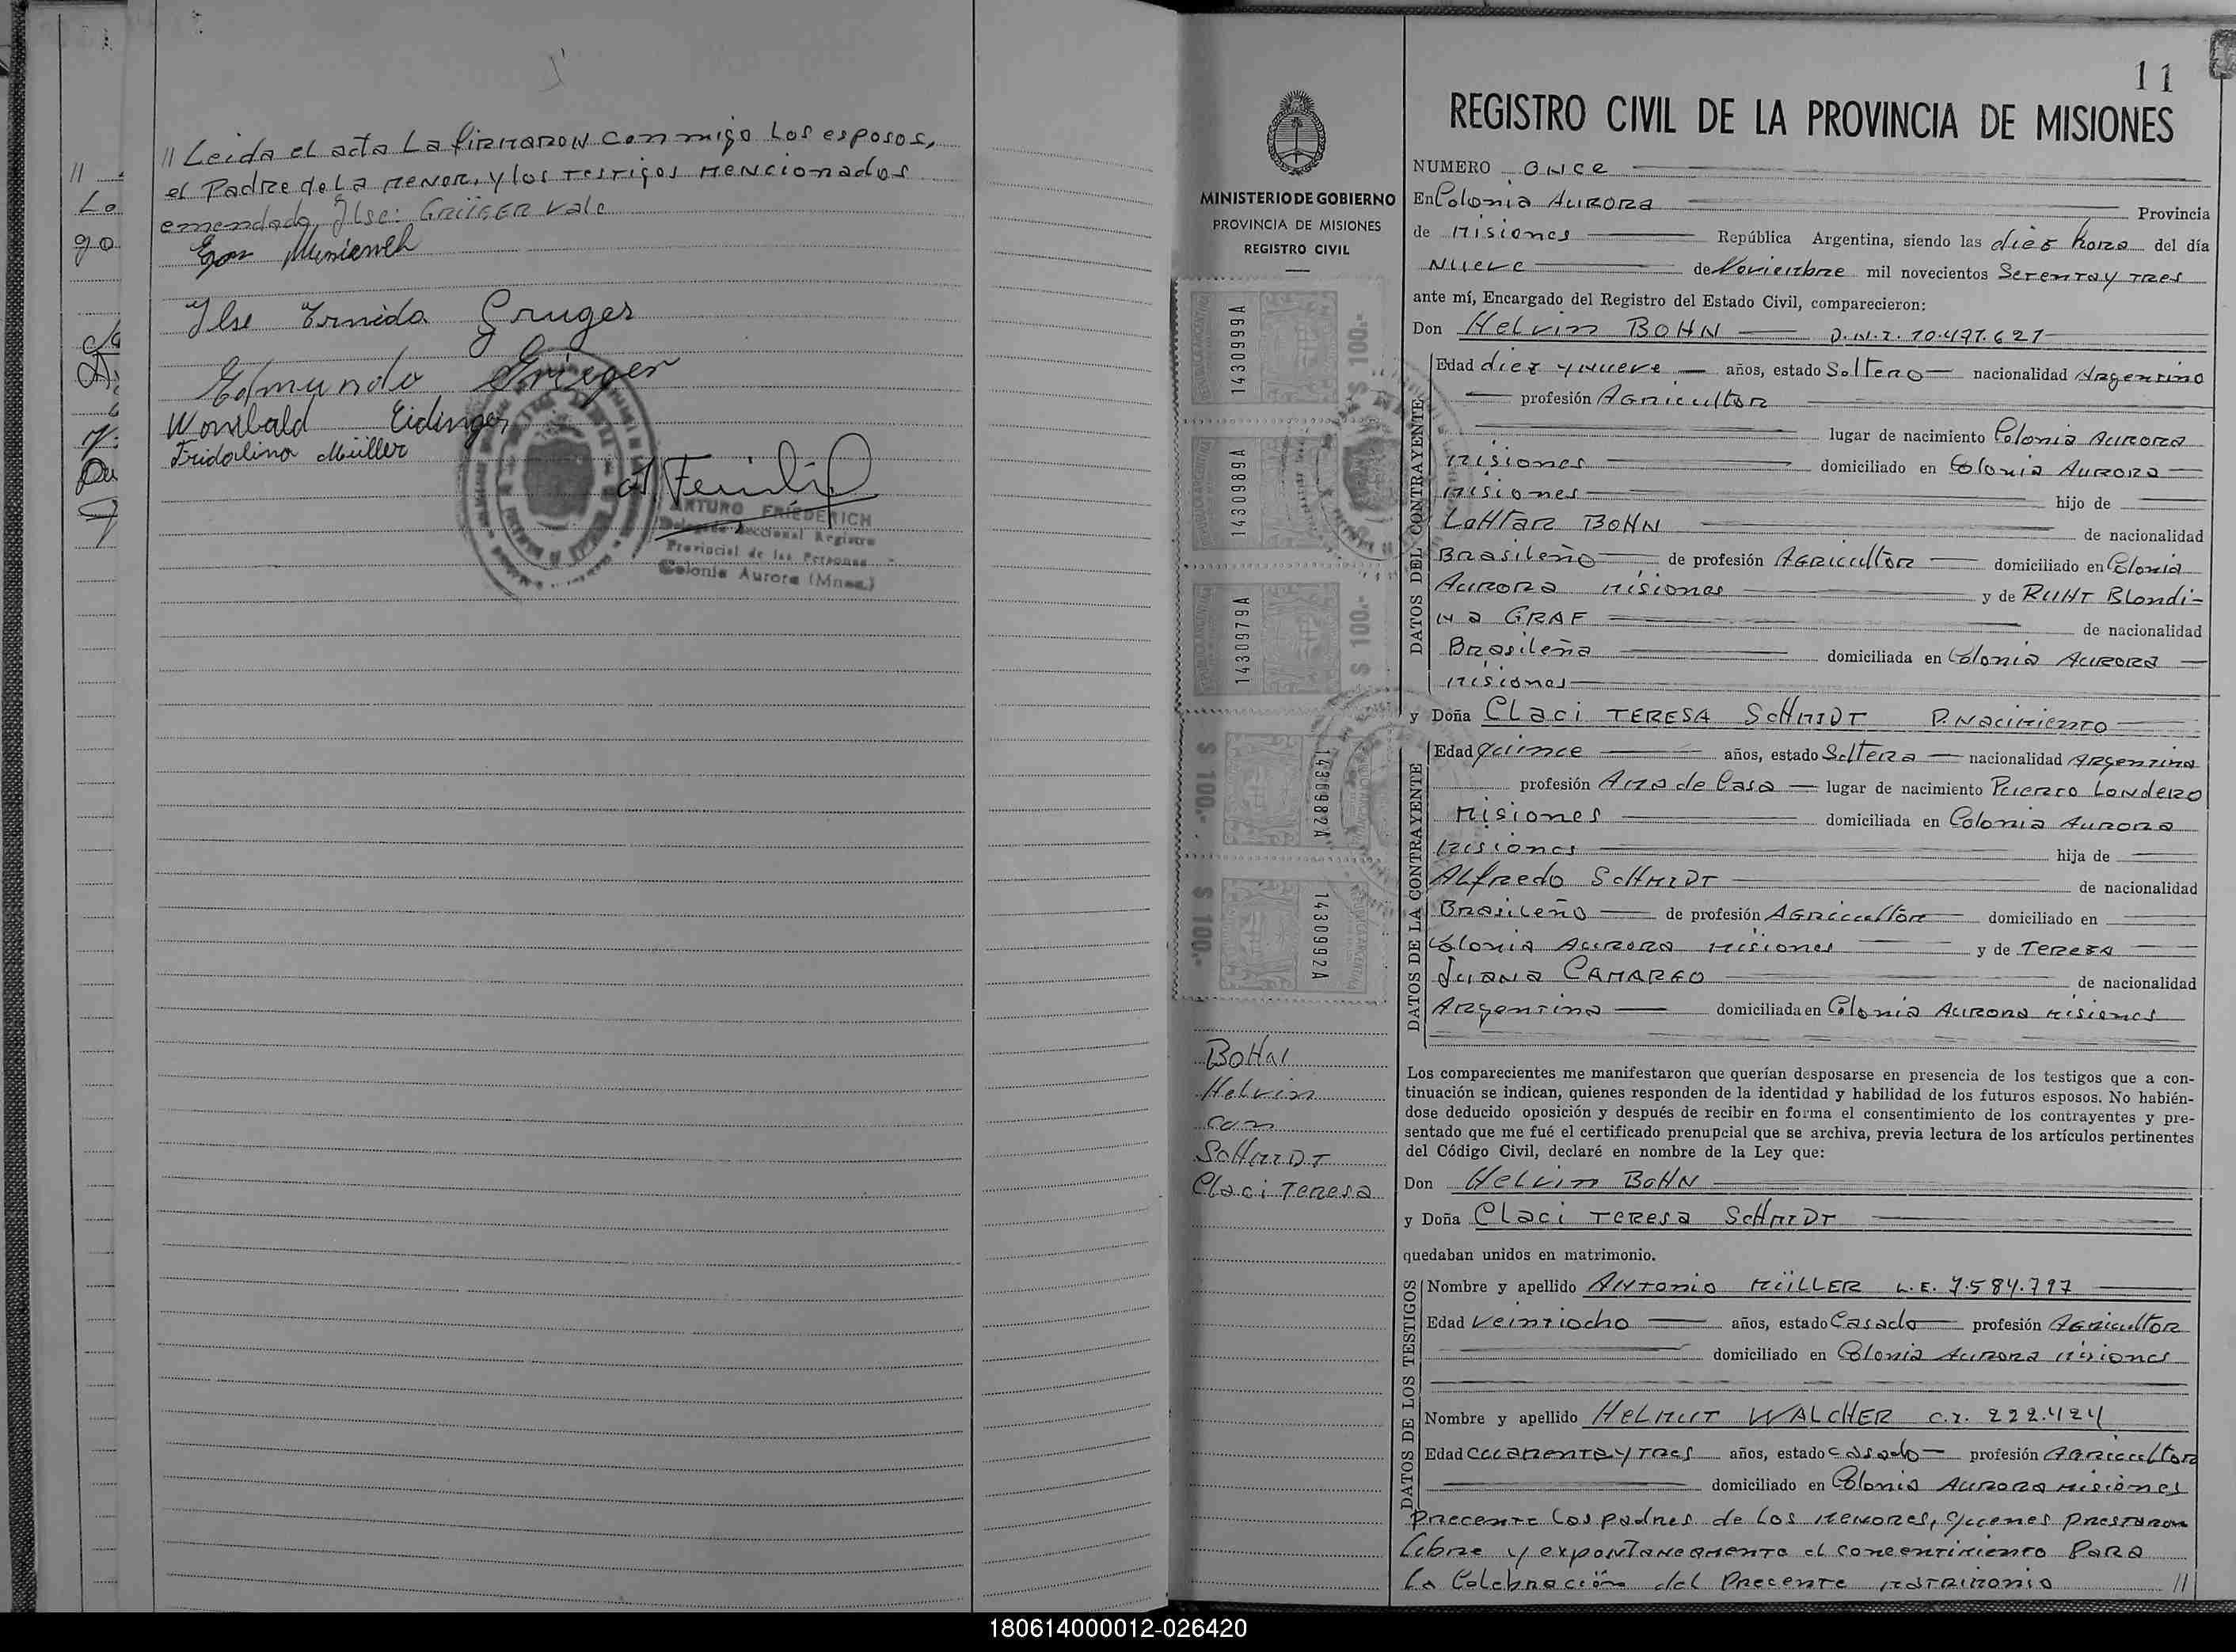 // Leida el acta La firmaron conmigo Los esposos,
el Padre de La menor, y los testigos mencionados
emendado Ilse: GRÜGER vale
Egon
Ilse Ernida Gruger
Edmundo Krieger
Wonibald Eidinger
Fridolino Müller
A. Friederich
ARTURO FRIEDERICH
Delegado Seccional Registro
Provincial de las Personas
Colonia Aurora (Mnes.)
//
Lo
go
MINISTERIO DE GOBIERNO
PROVINCIA DE MISIONES
REGISTRO CIVIL
1430999A
$ 100.-
1430989A
1430979A
$ 100.-
1430982A
$ 100.-
1430992A
$ 100.-
BOHN
Helvin
con
SCHMIDT
Claci Teresa
11
REGISTRO CIVIL DE LA PROVINCIA DE MISIONES
NUMERO once
En Colonia Aurora Provincia
de Misiones República Argentina, siendo las diez hora del día
Nueve de Noviembre mil novecientos Setenta y tres
ante mí, Encargado del Registro del Estado Civil, comparecieron:
Don Helvin BOHN D.N.I. 10.477.627
DATOS DEL CONTRAYENTE
Edad diez y nueve años, estado Soltero nacionalidad Argentino
profesión Agricultor
lugar de nacimiento Colonia Aurora
Misiones domiciliado en Colonia Aurora
Misiones hijo de
LOHTAR BOHN de nacionalidad
Brasileño de profesión Agricultor domiciliado en Colonia
Aurora Misiones y de RUHT Blondi-
na GRAF de nacionalidad
Brasileña domiciliada en Colonia Aurora
Misiones
y Doña Claci TERESA SCHMIDT P. Nacimiento
DATOS DE LA CONTRAYENTE
Edad quince años, estado Soltera nacionalidad Argentina
profesión Ama de Casa lugar de nacimiento Puerto Londero
Misiones domiciliada en Colonia Aurora
Misiones hija de
Alfredo SCHMIDT de nacionalidad
Brasileño de profesión Agricultor domiciliado en
Colonia Aurora Misiones y de TERESA
Juana CAMARGO de nacionalidad
Argentina domiciliada en Colonia Aurora Misiones
Los comparecientes me manifestaron que querían desposarse en presencia de los testigos que a con-
tinuación se indican, quienes responden de la identidad y habilidad de los futuros esposos. No habién-
dose deducido oposición y después de recibir en forma el consentimiento de los contrayentes y pre-
sentado que me fué el certificado prenupcial que se archiva, previa lectura de los artículos pertinentes
del Código Civil, declaré en nombre de la Ley que:
Don Helvin BOHN
y Doña Claci Teresa SCHMIDT
quedaban unidos en matrimonio.
DATOS DE LOS TESTIGOS
Nombre y apellido Antonio MÜLLER L.E. 7.584.797
Edad veintiocho años, estado Casado profesión Agricultor
domiciliado en Colonia Aurora Misiones
Nombre y apellido HELMUT WALCHER C.I. 222.424
Edad cuarenta y tres años, estado casado profesión Agricultor
domiciliado en Colonia Aurora Misiones
Precente los padres de los menores, quienes prestaron
libre y expontaneamente el concentimiento Para
la Celebración del Precente matrimonio //
180614000012-026420